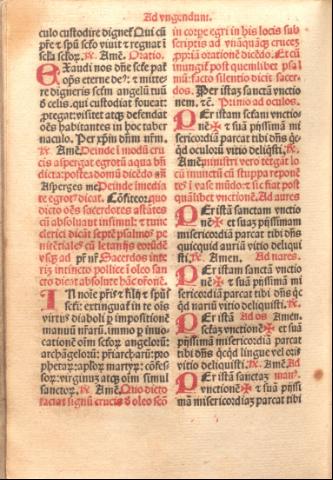 Ad vngendum.
culo custodire dignet̉ Qui cū
pr̄e ⁊ spū scō viuit ⁊ regnat ī
scl̄a scl̄oꝝ. ℟. Amē. Oratio.
Exaudi nos dn̄e scē pat̉
oīps eterne deꝰ: ⁊ mitte-
re digneris scm̄ angelū tuū
d̓ celis. qui custodiat foueat:
ꝓtegat: visitet atqꝫ defendat
oēs habitantes in hoc taber
naculo. Per xp̄m dn̄m nr̄m.
℟. Amē. Deinde ī modū cru
cis aspergat egrotū aqua bn̄
dicta: postea domū dicēdo añ
Asperges me Deinde īmedia
te egrotꝰ dicat. Cōfiteor. quo
dicto oēs sacerdotes astātes
cū absoluant insimul: ⁊ tunc
clerici dicāt septē psalmos pe
nitētiales cū letanijs eorūdē
vsqꝫ ad pr̄ nr̄ Sacerdos inte
rī intincto pollice ī oleo san
cto dicat absolute hāc ōronē.
In noīe pr̄is ⁊ filij ⁊ spūs
scī: extinguat̉ in te oīs
virtus diaboli ꝑ impositionē
manuū nr̄arū. immo ꝑ inuo
cationē oīm scōꝝ angeloꝝ:
archāgeloꝝ: pr̄iarcharū: pro
phetaꝝ: apl̄oꝝ martyꝝ: cōfes
soꝝ: virginū atqꝫ oīm simul
sanctoꝝ. ℟. Amē. Quo dicto
faciat signū crucis d̓ oleo scō
in corpe egri in his locis sub
scriptis ad vnāquāqꝫ crucē
ꝓpriā orationē dicēdo. Et cū
inungit̉ post quemlibet psal
mū: facto silentio dicit̉ sacer-
dos. Per istaꝫ sanctā vnctio
nem, ⁊c̄. Primo ad oculos.
Per istam sctam vnctio
nē✠ ⁊ suā pijssimā mi
sericordiā parcat tibi dn̄s qc̓-
qd̓ oculoꝝ vitio deliqsti. ℟.
Amē. ministri vero tergāt lo
cū inunctū cū stuppa reponē
tes ī vase mūdo: ⁊ sic fiat post
quālibet vnctionē. Ad aures
Per istā sanctam vnctio
nē✠ et suaꝫ pijssimam
misericordiā parcat tibi dn̄s
quicquid auriū vitio deliqui
sti. ℟. Amen. Ad nares.
Per istam sanctā vnctio
nē✠ ⁊ suā pijssimā mi
sericordiā parcat tibi dn̄s qc̓
qd̓ nariū vitio deliquisti. ℟.
Per istā Ad os Amen.
sctaꝫ vnctionē✠ et suā
pijssimā misericordiā parcat
tibi dn̄s qc̓qd̓ lingue vel oris
vitio deliqsti. ℟. Amē. Ad
Per istā sanctaꝫ manꝰ.
vnctionē✠ ⁊ suā pijssi
mā misericordiaꝫ parcat tibi